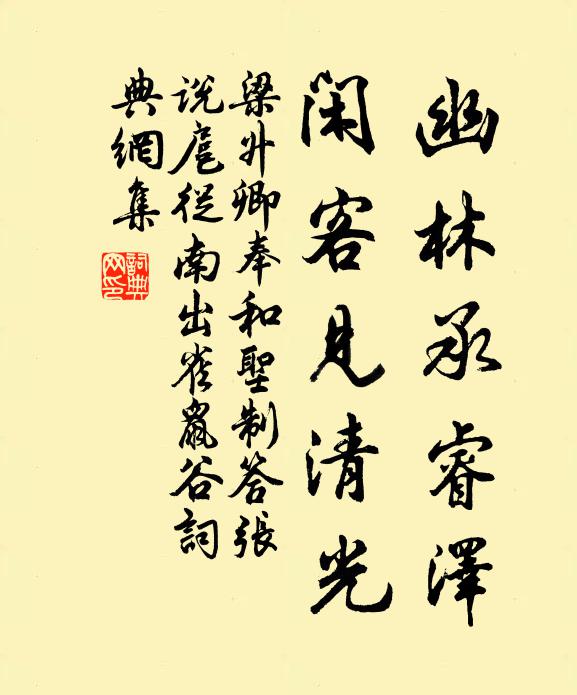 幽林承睿澤
閑客見清光
梁升卿奉和聖制答張
說扈從南出雀鼠谷詞
典網集
詞典
网印